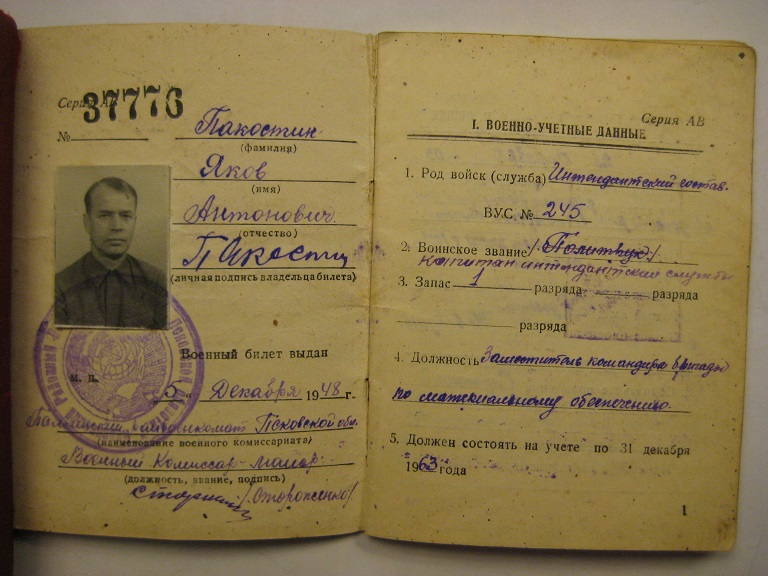 Серия АВ
37776
№
Пакостин
(фамилия)
Яков
(имя)
Антонович
(отчество)
(личная подпись владельца билета)
Военный билет выдан
м. п.
5 " Декабря 1948 г.
Псковской обл.
(наименование военного комиссариата)
Военный Комиссар-майор
(должность, звание, подпись)
/Стороженко/
Серия АВ
I. ВОЕННО-УЧЕТНЫЕ ДАННЫЕ
1. Род войск (служба) Интендантский состав.
ВУС № 245
2. Воинское звание /Политрук/.
капитан интендантский службы
3. Запас 1 разряда разряда
разряда
4. Должность Заместитель командира бригады
по материальному обеспечению.
5. Должен состоять на учете по 31 декабря
1963 года
1